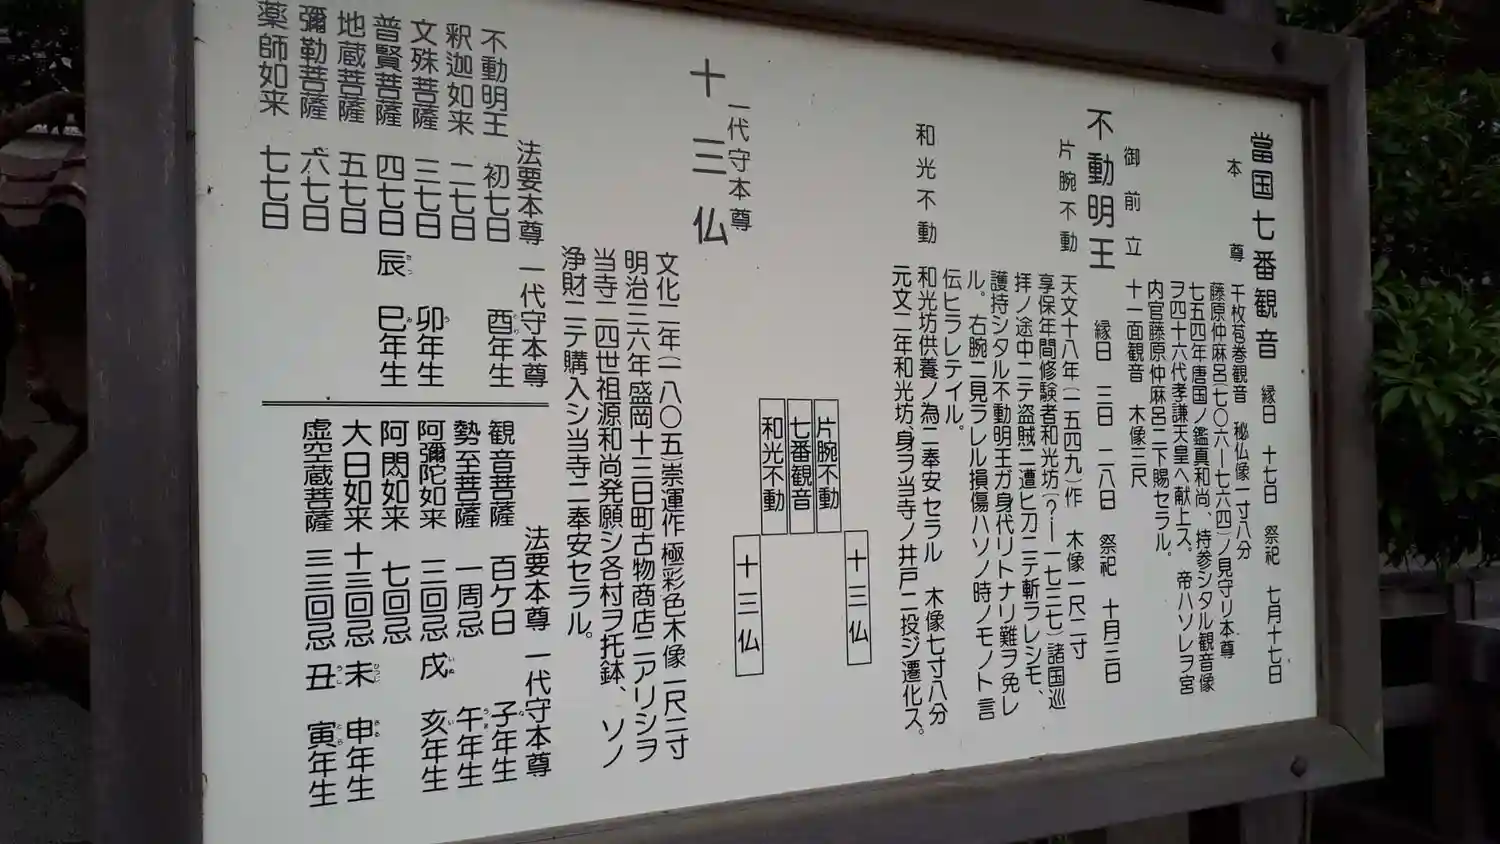 當国七番観音 縁日 十七日 祭祀 七月十七日
本尊 千枚苞巻観音 秘仏像一寸八分
藤原仲麻呂(七〇六ー七六四)ノ見守リ本尊
七五四年唐国ノ鑑真和尚、持参シタル観音像
ヲ四十六代孝謙天皇ヘ献上ス。帝ハソレヲ宮
内官藤原仲麻呂ニ下賜セラル。
御前立 十一面観音 木像三尺
不動明王 縁日 三日 二八日 祭祀 十月三日
片腕不動 天文十八年(一五四九)作 木像一尺二寸
享保年間修験者和光坊(?ー一七三七)諸国巡
拝ノ途中ニテ盗賊ニ遭ヒ刀ニテ斬ラレシモ、
護持シタル不動明王ガ身代リトナリ難ヲ免レ
ル。右腕ニ見ラレル損傷ハソノ時ノモノト言
伝ヒラレテイル。
和光不動 和光坊供養ノ為ニ奉安セラル 木像七寸八分
元文二年和光坊身ヲ当寺ノ井戸ニ投ジ遷化ス。
十三仏
片腕不動
七番観音
和光不動
十三仏
一代守本尊
十三仏
文化二年(一八〇五)崇運作極彩色木像一尺二寸
明治三六年盛岡十三日町古物商店ニアリシヲ
当寺二四世祖源和尚発願シ各村ヲ托鉢、ソノ
浄財ニテ購入シ当寺ニ奉安セラル。
法要本尊 一代守本尊
不動明王 初七日 酉年生
釈迦如来 二七日
文殊菩薩 三七日 卯年生
普賢菩薩 四七日 辰 巳年生
地蔵菩薩 五七日
彌勒菩薩 六七日
薬師如来 七七日
法要本尊 一代守本尊
観音菩薩 百ケ日 子年生
勢至菩薩 一周忌 午年生
阿彌陀如来 三回忌 戌 亥年生
阿閦如来 七回忌
大日如来 十三回忌 未 申年生
虚空蔵菩薩 三三回忌 丑 寅年生